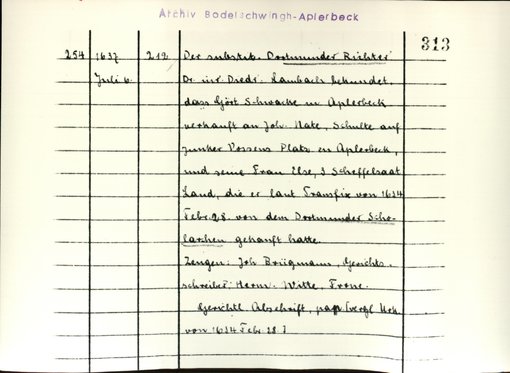 Archiv Bodelschwingh-Aplerbeck
313
254 1637 212 Der substit. Dortmunder Richter
Juli 6. Dr. iur. Diedr. Lambach bekundet,
dass Gört Schwacke in Aplerbeck
verkauft an Joh. Nate, Schulte auf
Junker Vossens Platz in Aplerbeck,
und seine Frau Else, 3 Scheffelsaat
Land, die er laut Transfix von 1634
Febr. 28. von dem Dortmunder Scho-
larchen gekauft hatte.
Zeugen: Joh Brügmann, Gerichts-
schreiber, Herm. Witte, Frone.
Gerichtl. Abschrift, pap. (vergl Urk
von 1634 Febr 28.)